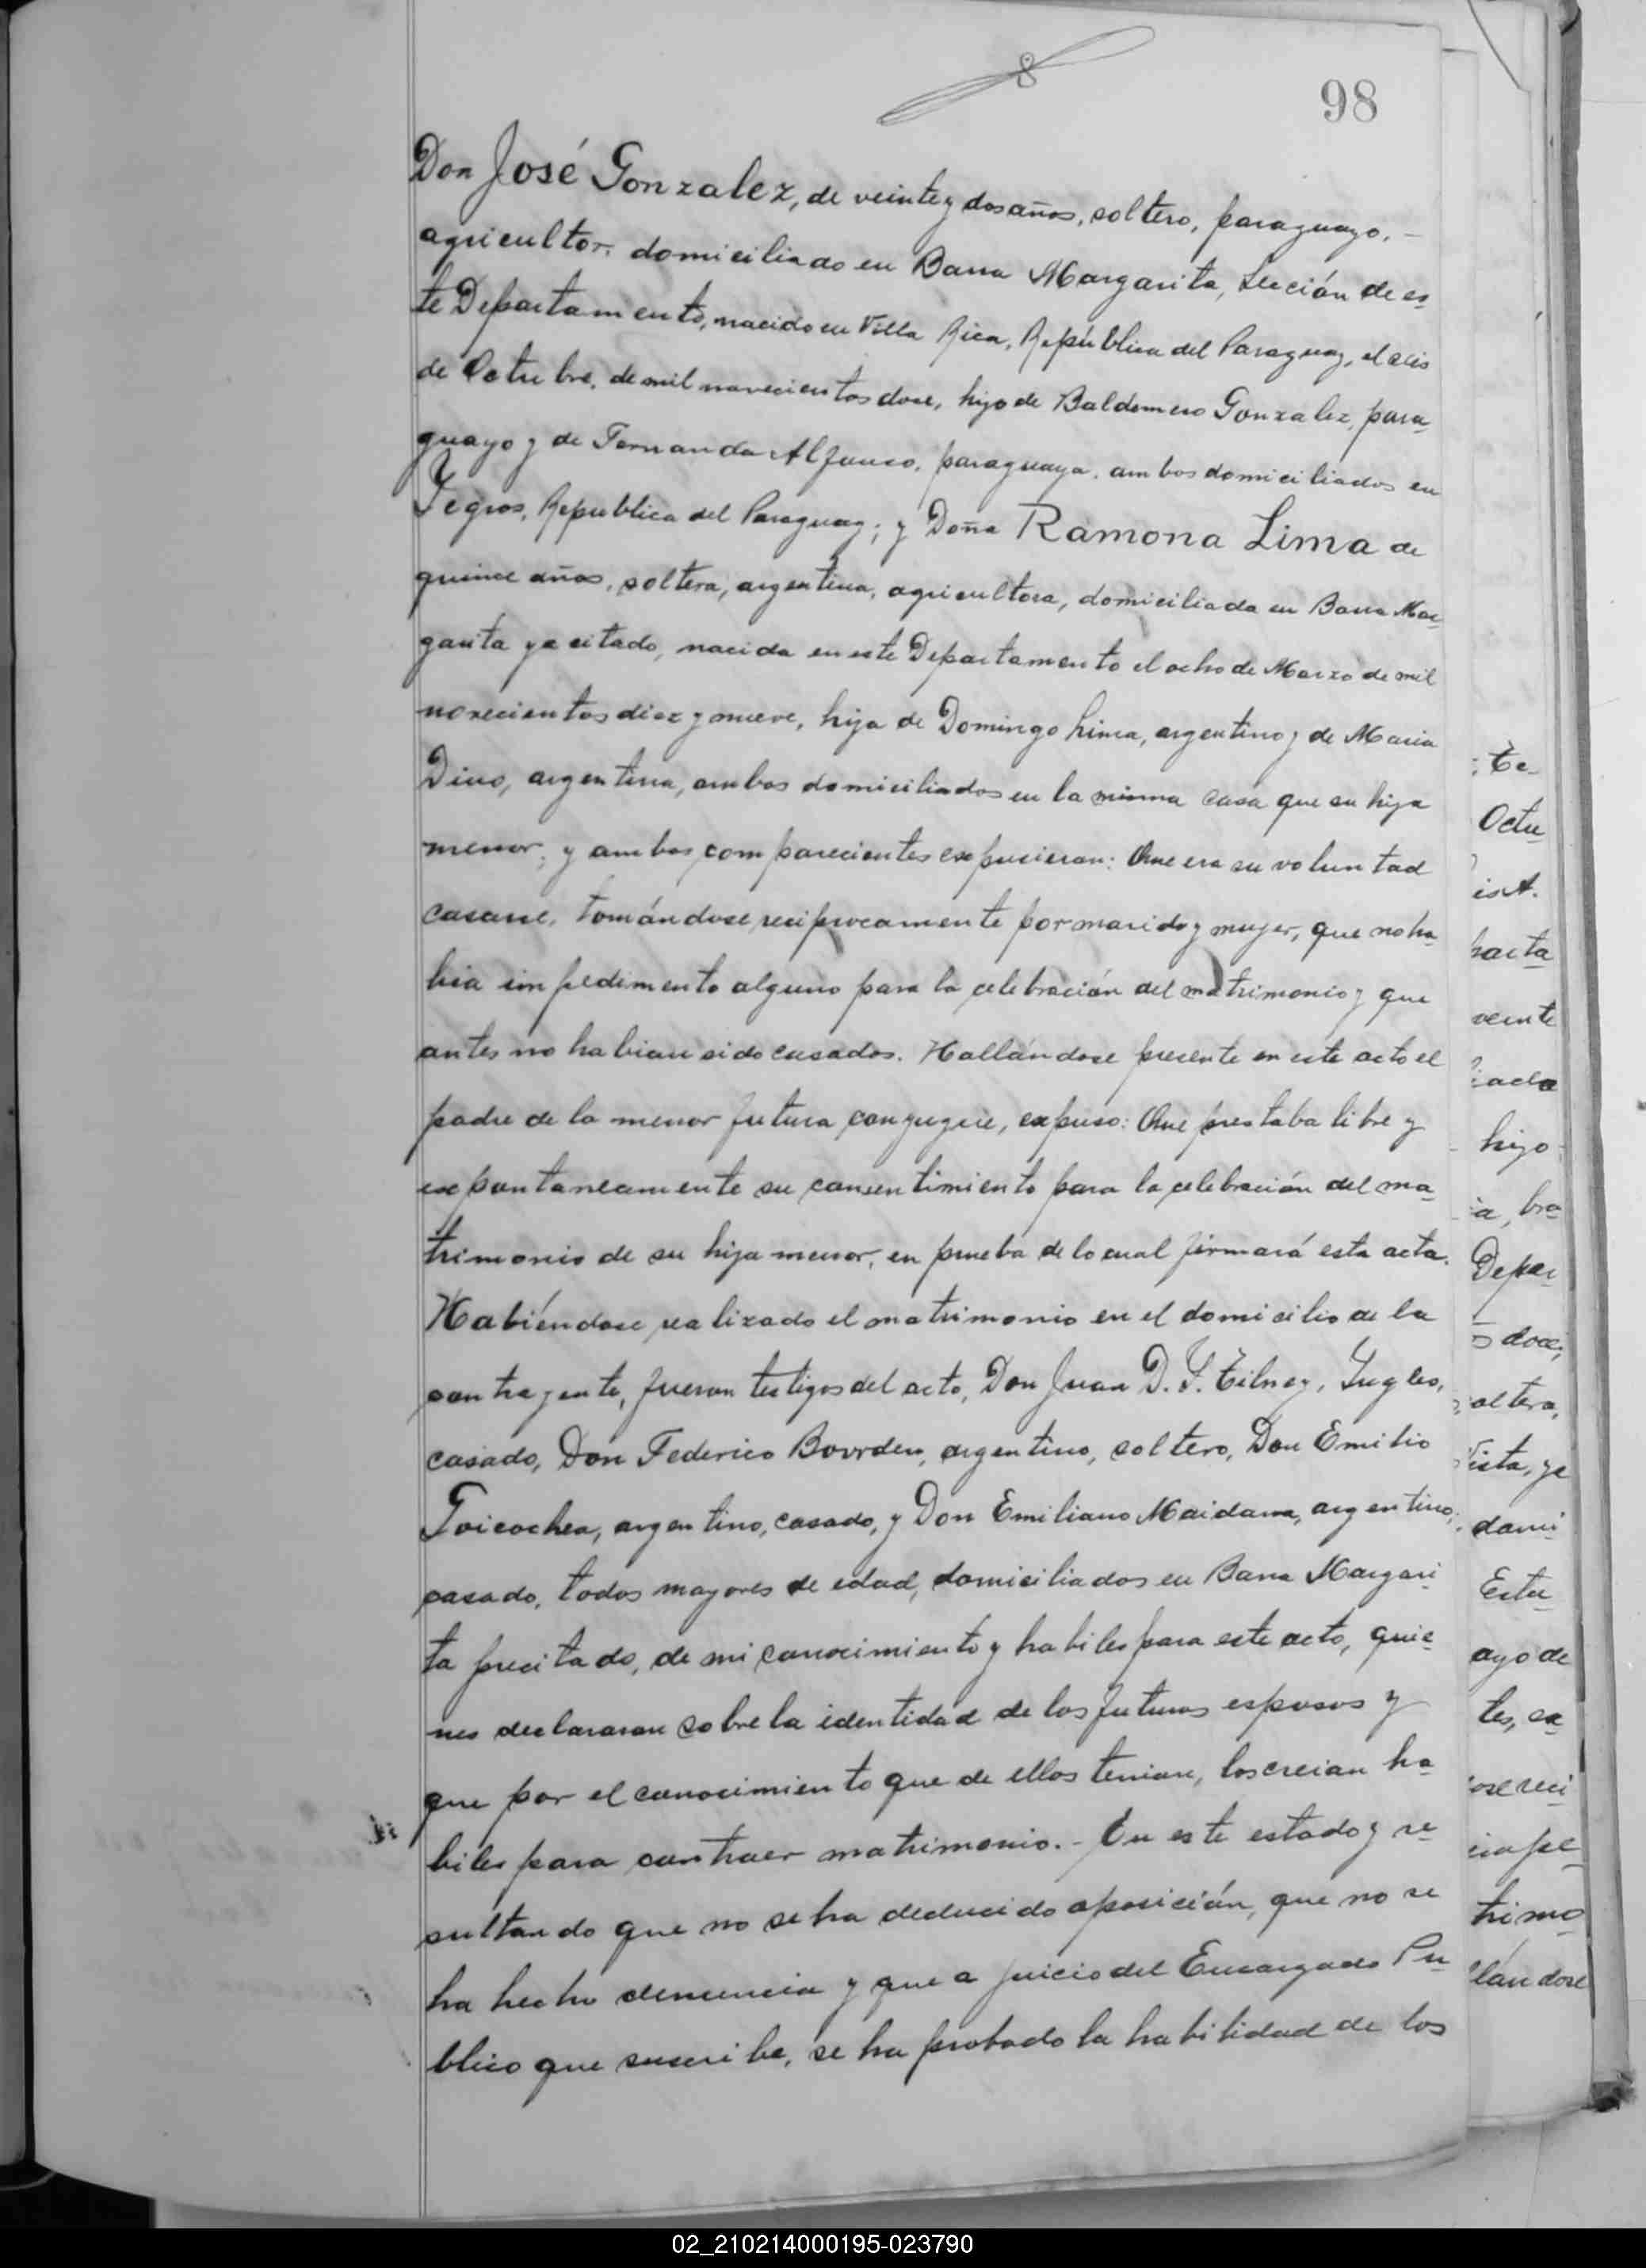 8
98
Don José Gonzalez, de veinte y dos años, soltero, paraguayo, -
agricultor, domiciliado en Barra Margarita, Sección de es
te Departamento, nacido en Villa Rica, República del Paraguay, el seis
de Octubre, de mil novecientos doce, hijo de Baldomero Gonzalez, para
guayo y de Fernanda Alfonso, paraguaya, ambos domiciliados en
Yegros, Republica del Paraguay; y Doña Ramona Lima de
quince años, soltera, argentina, agricultora, domiciliada en Barra Mar
garita ya citado, nacida en este Departamento el ocho de Marzo de mil
novecientos diez y nueve, hija de Domingo Lima, argentino y de Maria
Dino, argentina, ambos domiciliados en la misma casa que su hija
menor; y ambos comparecientes expusieron: Que era su voluntad
casarse, tomándose reciprocamente por marido y mujer, que no ha
bia impedimento alguno para la celebración del matrimonio y que
antes no habian sido casados. Hallándose presente en este acto el
padre de la menor futura conyugue, expuso: Que prestaba libre y
expontaneamente su consentimiento para la celebración del ma
trimonio de su hija menor, en prueba de lo cual firmará esta acta.
Habiéndose realizado el matrimonio en el domicilio de la
contrayente, fueron testigos del acto, Don Juan D. Y. Tilney, Ingles,
casado, Don Federico Bovrden, argentino, soltero, Don Emilio
Goicochea, argentino, casado, y Don Emiliano Maidana, argentino,
casado, todos mayores de edad, domiciliados en Barra Margari
ta precitado, de mi conocimiento y habiles para este acto, quie
nes declararon sobre la identidad de los futuros esposos y
que por el conocimiento que de ellos tenian, los creian ha
biles para contraer matrimonio.- En este estado y re
sultando que no se ha deducido oposición, que no se
ha hecho denuncia y que a juicio del Encargado Pu
blico que suscribe, se ha probado la habilidad de los
te
Octu
veinte
hijo
ia, bra
Depar
s doce;
oltera,
vista, ya
domi
Esta
ayo de
tes, ex
ose reci
impe
trimo
lándose
02_210214000195-023790